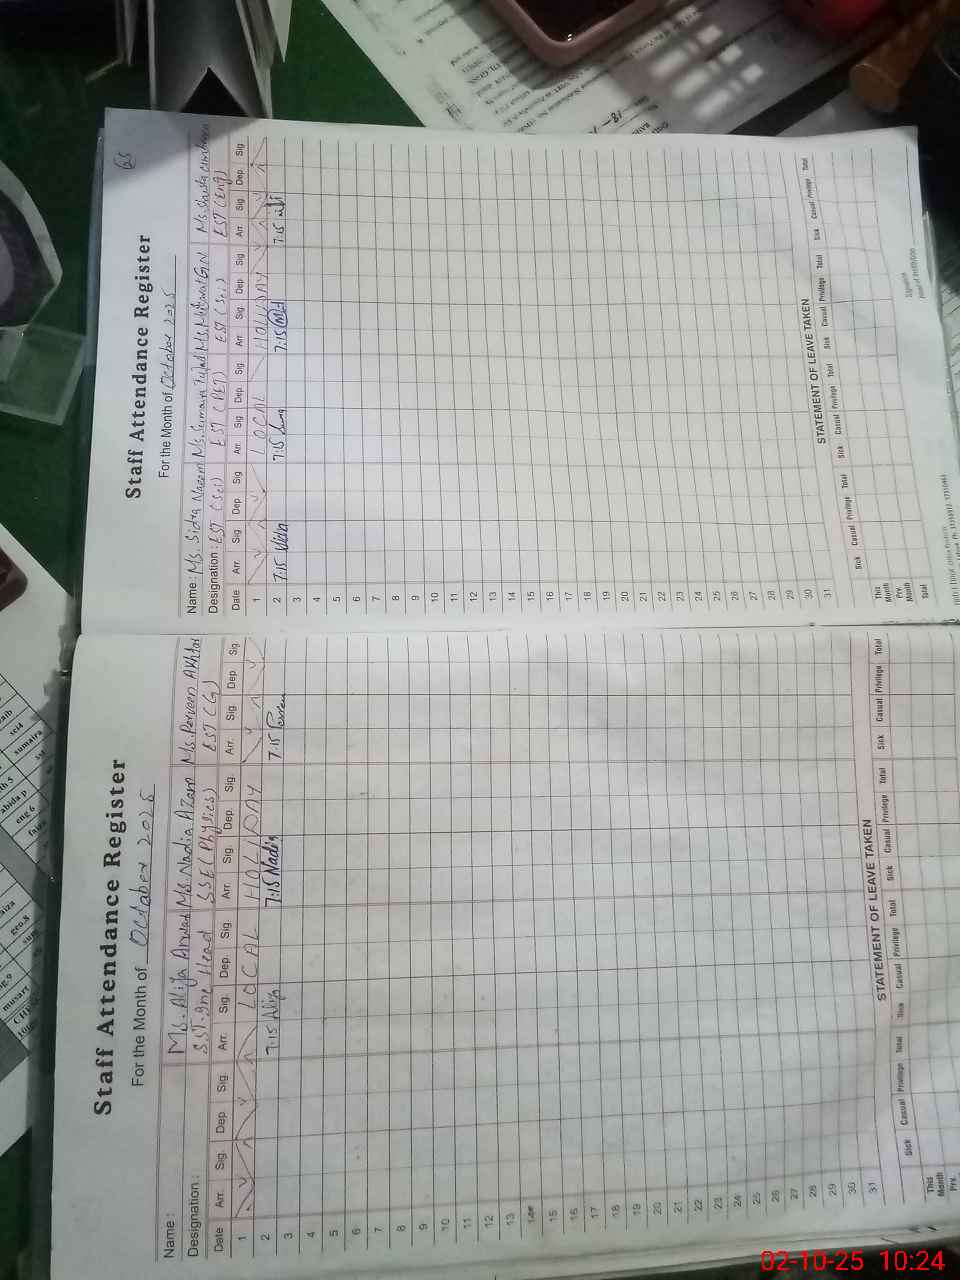 Staff Attendance Register
For the Month of October 2025
Name : Ms. Aliya Ms. Nadia Azam Ms. Parveen Akhtar
Designation : SST. Inc Head SSE (Physics) EST (G)
Date Arr. Sig. Dep. Sig. Arr. Sig. Dep. Sig. Arr. Sig. Dep. Sig. Arr. Sig. Dep Sig.
1 LOCAL HOLIDAY
2 7:15 Aliya 7:15 Nadia 7:15
3
4
5
6
7
8
9
10
11
12
13
14
15
16
17
18
19
20
21
22
23
24
25
26
27
28
29
30
31
STATEMENT OF LEAVE TAKEN
Sick Casual Privilege Total Sick Casual Privilege Total Sick Casual Privilege Total Sick Casual Privilege Total
This Month
Prv.
Staff Attendance Register
For the Month of October 2025
Name : Ms. Sidra Nazam Ms. Sumaira Ms.
Designation : EST (Sci) EST (PET) EST (Sci) EST (Eng)
Date Arr. Sig. Dep. Sig. Arr. Sig. Dep. Sig. Arr. Sig. Dep. Sig. Arr. Sig. Dep. Sig.
1 LOCAL HOLIDAY
2 7:15 7:15 7:15 7:15
3
4
5
6
7
8
9
10
11
12
13
14
15
16
17
18
19
20
21
22
23
24
25
26
27
28
29
30
31
STATEMENT OF LEAVE TAKEN
Sick Casual Privilege Total Sick Casual Privilege Total Sick Casual Privilege Total Sick Casual Privilege Total
This Month
Prv. Month
Total
02-10-25 10:24